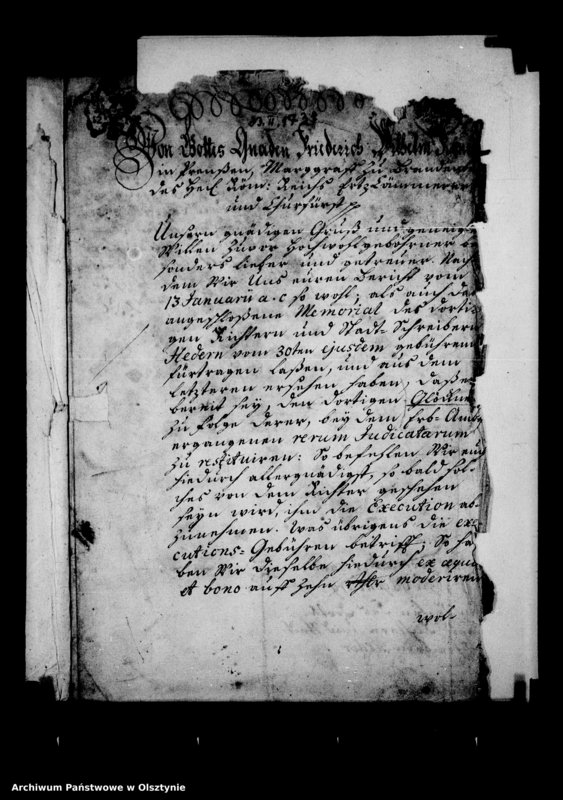 13.II.1723
Von Gottes Gnaden Friderich Wilhelm König
in Preußen, Marggraff zu Brandenb
des Heil: Röm: Reichs Ertz Cämmerer
und Churfürst p
Unsern gnädigen Gruß und geneigt
Willen zuvor Hochwohlgebohrner be
sonders lieber und getreuer. Nach
dem Wir Uns euren Bericht vom
13 Januarii a. c so wohl, als auch das
angeschloßene Memorial des dorti-
gen Richtern und Stadt-Schreibern
Hedern vom 30ten ejusdem gebührend
fürtragen laßen, und aus dem
letzteren ersehen haben, daß er
bereit sey, den dortigen Glöckner
zu folge derer, bey dem Erb-Ambt
ergangenen rerum Judicatarum
zu restituiren: So befehlen Wir euch
hiedurch allergnädigst, so bald sol-
ches von dem Richter geschehen
seyn wird, ihm die Execution ab-
zunehmen. Was übrigens die exe
cutions-Gebühren betrifft; So ha
ben Wir dieselbe hiedurch ex aequo
et bono auff zehn rthlr moderiren
wol-
Archiwum Państwowe w Olsztynie